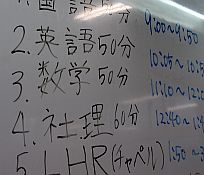 国語50分 9:00〜9:50
2.英語50分 10:05〜10:5
3.数学50分 11:10〜12:0
4.社理60分 12:40〜1:4
5.LHR(チャペル) 1:50〜3